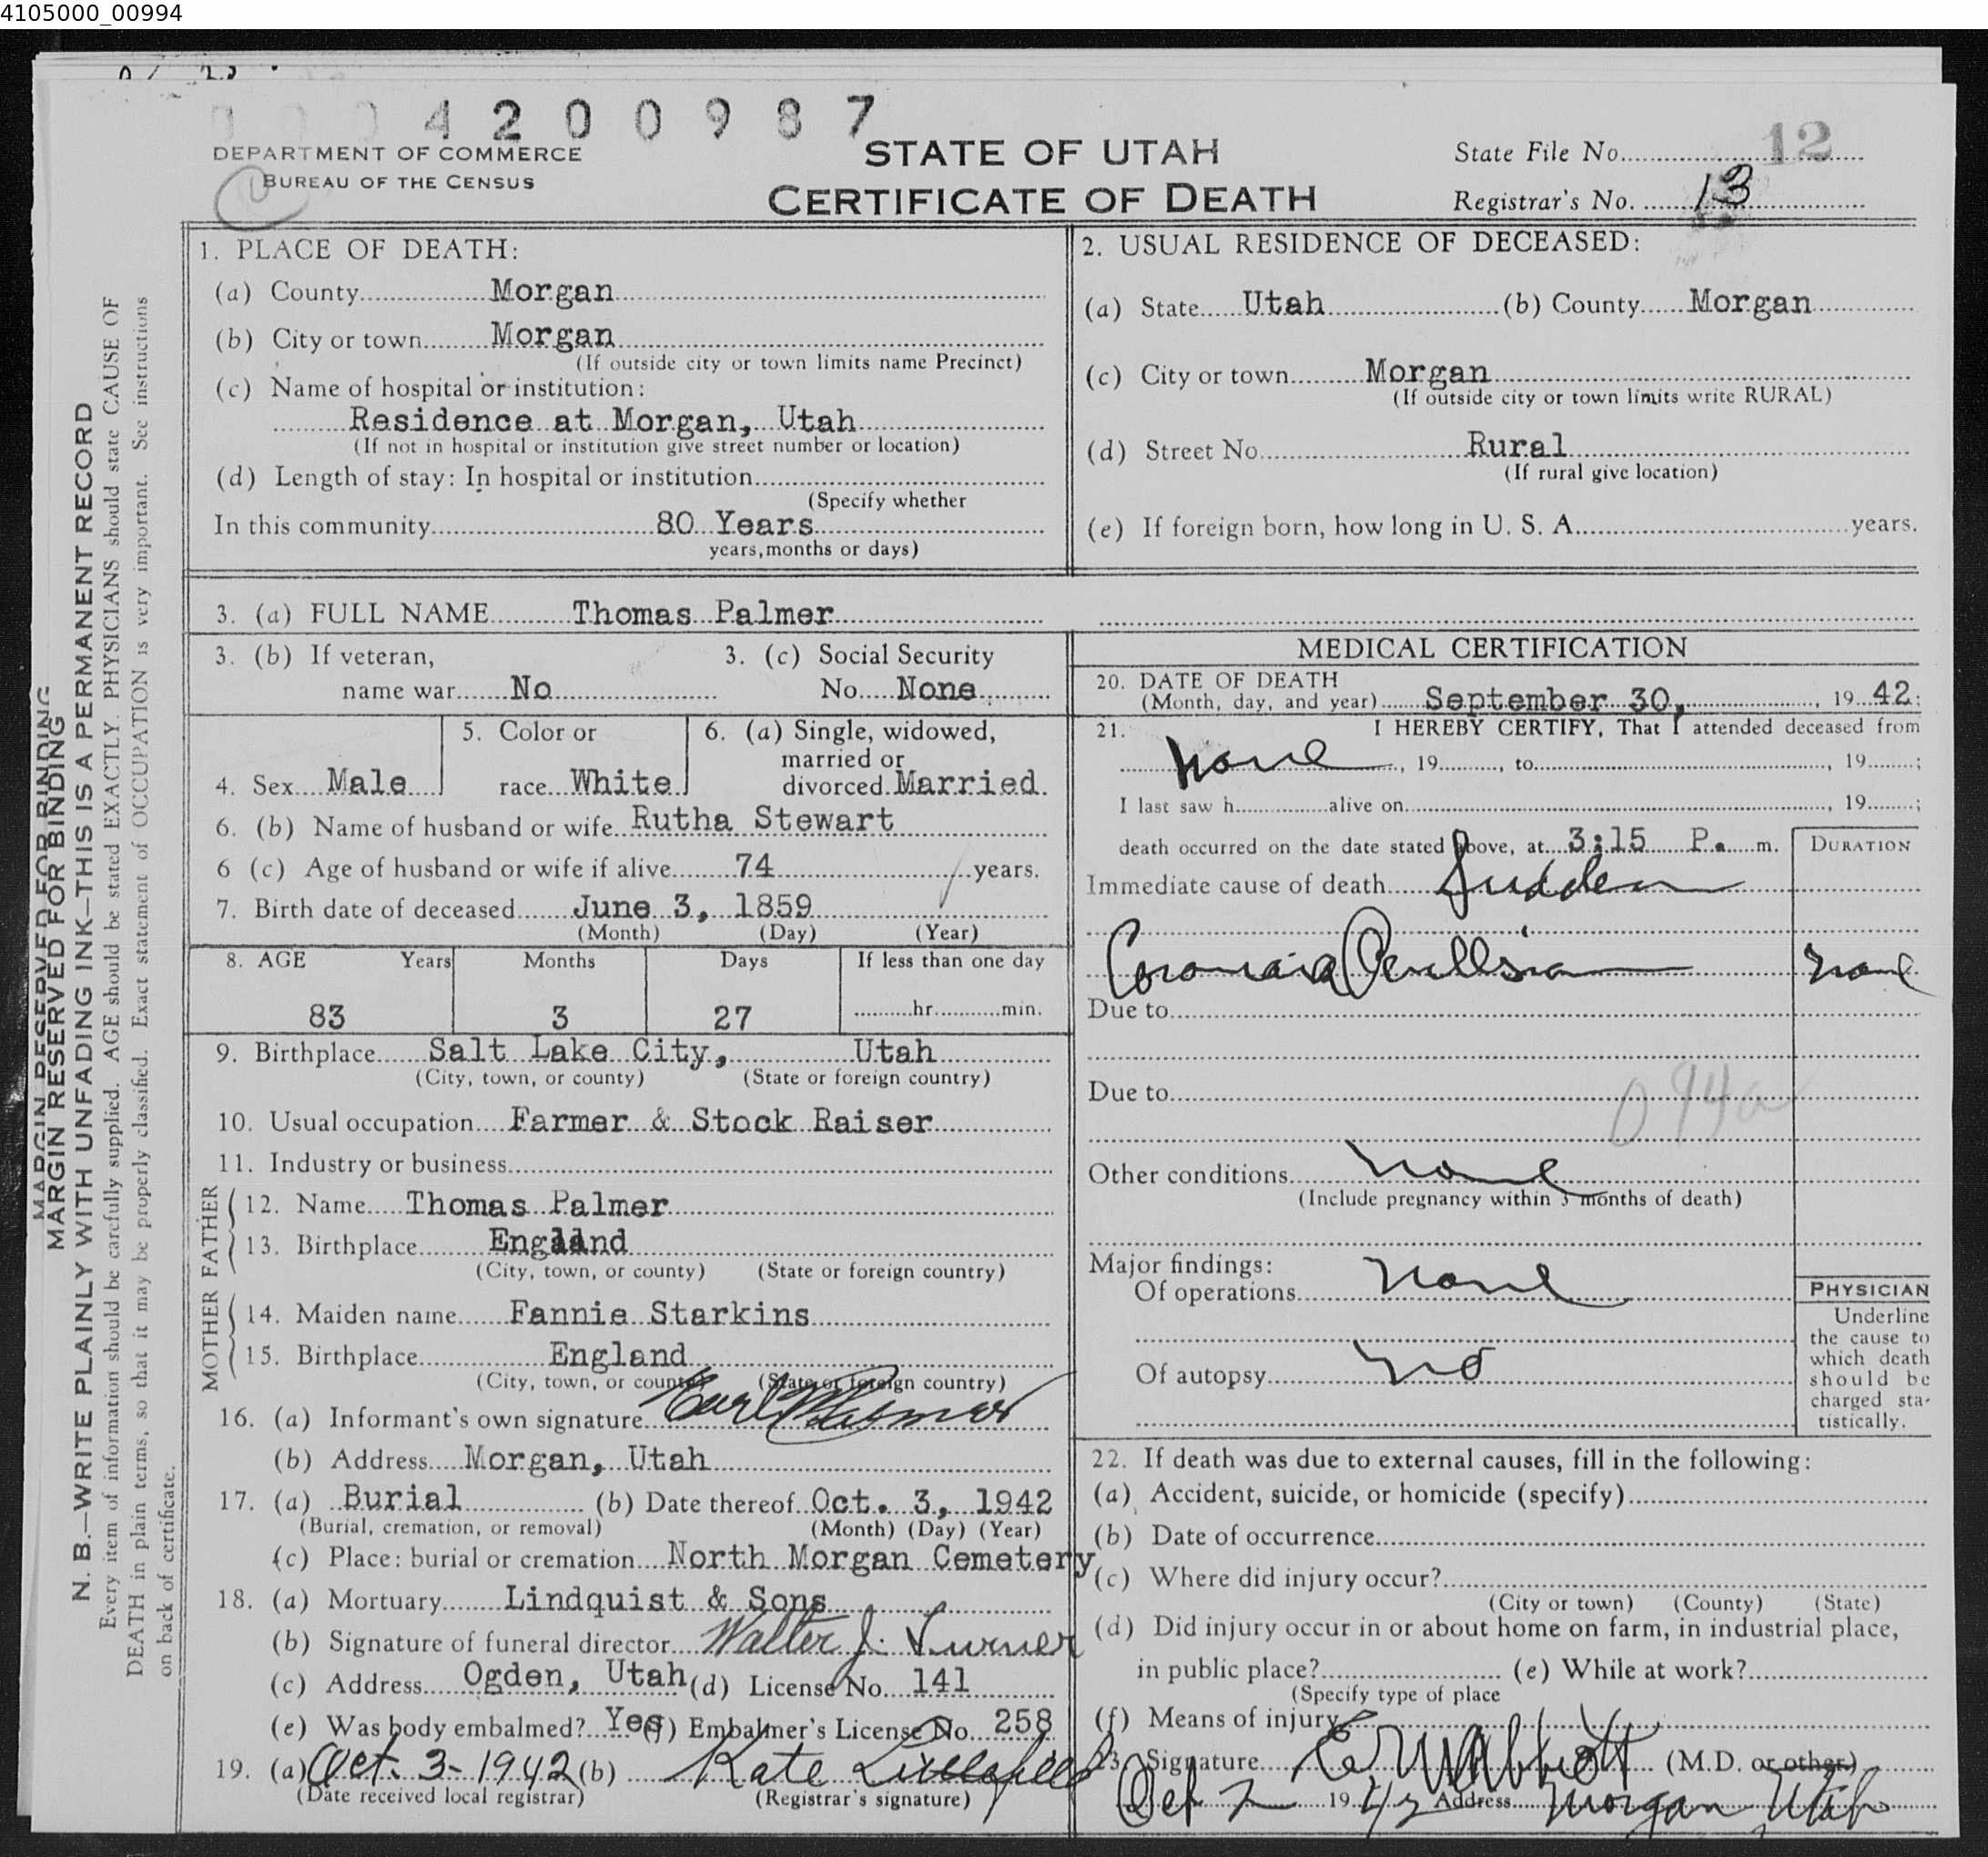 4105000_00994
4200987
DEPARTMENT OF COMMERCE
BUREAU OF THE CENSUS
STATE OF UTAH
CERTIFICATE OF DEATH
State File No. 12
Registrar's No. 13
MARGIN RESERVED FOR BINDING
MARGIN RESERVED FOR BINDING
N. B.—WRITE PLAINLY WITH UNFADING INK—THIS IS A PERMANENT RECORD
Every item of information should be carefully supplied. AGE should be stated EXACTLY. PHYSICIANS should state CAUSE OF
DEATH in plain terms, so that it may be properly classified. Exact statement of OCCUPATION is very important. See instructions
on back of certificate.
1. PLACE OF DEATH:
(a) County Morgan
(b) City or town Morgan
(If outside city or town limits name Precinct)
(c) Name of hospital or institution:
Residence at Morgan, Utah
(If not in hospital or institution give street number or location)
(d) Length of stay: In hospital or institution
(Specify whether
In this community 80 Years
years, months or days)
2. USUAL RESIDENCE OF DECEASED:
(a) State Utah (b) County Morgan
(c) City or town Morgan
(If outside city or town limits write RURAL)
(d) Street No. Rural
(If rural give location)
(e) If foreign born, how long in U. S. A. years.
3. (a) FULL NAME Thomas Palmer
3. (b) If veteran, 3. (c) Social Security
name war No No. None
4. Sex Male
5. Color or
race White
6. (a) Single, widowed,
married or
divorced Married
6. (b) Name of husband or wife Rutha Stewart
6 (c) Age of husband or wife if alive 74 years.
7. Birth date of deceased June 3, 1859
(Month) (Day) (Year)
8. AGE Years Months Days If less than one day
83 3 27 hr. min.
9. Birthplace Salt Lake City, Utah
(City, town, or county) (State or foreign country)
10. Usual occupation Farmer & Stock Raiser
11. Industry or business
FATHER
12. Name Thomas Palmer
13. Birthplace England
(City, town, or county) (State or foreign country)
MOTHER
14. Maiden name Fannie Starkins
15. Birthplace England
(City, town, or county) (State or foreign country)
16. (a) Informant's own signature Earl Palmer
(b) Address Morgan, Utah
17. (a) Burial (b) Date thereof Oct. 3, 1942
(Burial, cremation, or removal) (Month) (Day) (Year)
(c) Place: burial or cremation North Morgan Cemetery
18. (a) Mortuary Lindquist & Sons
(b) Signature of funeral director Walter J.
(c) Address Ogden, Utah (d) License No. 141
(e) Was body embalmed? Yes (f) Embalmer's License No. 258
19. (a) Oct. 3- 1942 (b) Kate
(Date received local registrar) (Registrar's signature)
MEDICAL CERTIFICATION
20. DATE OF DEATH
(Month, day, and year) September 30, 1942;
21. I HEREBY CERTIFY, That I attended deceased from
none, 19 , to , 19 ;
I last saw h alive on , 19 ;
death occurred on the date stated above, at 3:15 P. m.
DURATION
Immediate cause of death Sudden
none
Due to
Due to
094a
Other conditions none
(Include pregnancy within 3 months of death)
Major findings:
Of operations none
Of autopsy no
PHYSICIAN
Underline
the cause to
which death
should be
charged sta-
tistically.
22. If death was due to external causes, fill in the following:
(a) Accident, suicide, or homicide (specify)
(b) Date of occurrence
(c) Where did injury occur?
(City or town) (County) (State)
(d) Did injury occur in or about home on farm, in industrial place,
in public place? (e) While at work?
(Specify type of place
(f) Means of injury
23. Signature Abbott (M.D. or other)
Oct 2 1942 Address Morgan Utah